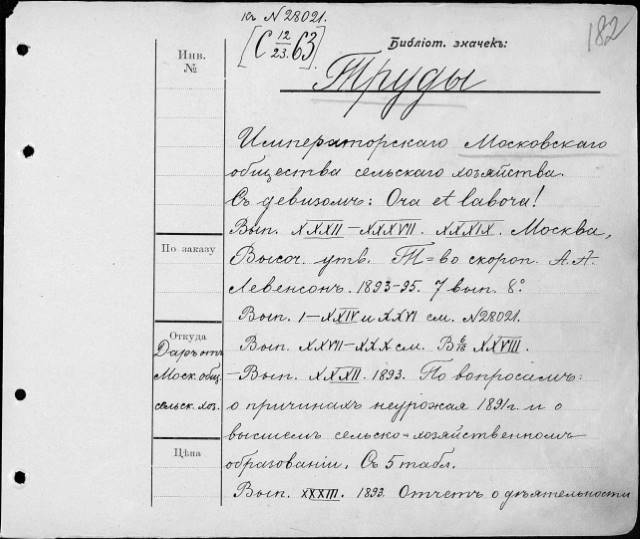 къ N 28021.
[С 12/23. 63]
182
Инв. №
Библіот. значекъ:
Труды
Императорскаго Московскаго
общества сельскаго хозяйства.
Съ девизомъ: Ora et labora!
Вып. XXXII–XXXVII. XXXIX. Москва,
По заказу
Высоч. утв. Т=во скороп. А.А.
Левенсонъ. 1893-95. 7 вып. 8°
Вып. I–XXIV и XXVI см. N28021.
Откуда
Вып. XXVII–XXX см. XXVIII.
Даръ отъ
Моск. общ.
сельск. хоз.
–Вып. XXXII. 1893. По вопросамъ:
о причинахъ неурожая 1891 г. и о
высшемъ сельско-хозяйственномъ
Цѣна
образованіи. Съ 5 табл.
Вып. XXXIII. 1893. Отчетъ о дѣятельности